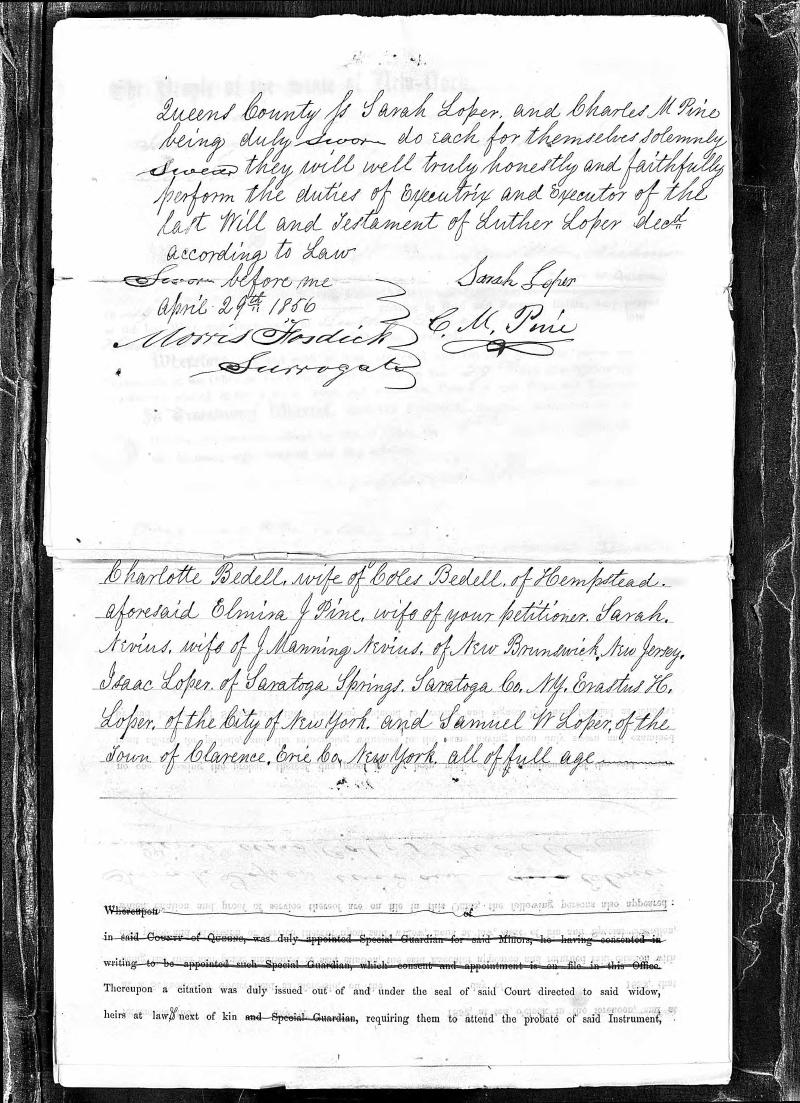 Queens County ss Sarah Loper, and Charles M Pine
being duly sworn do each for themselves solemnly
swear they will well truly honestly and faithfully
perform the duties of Executrix and Executor of the
last Will and Testament of Luther Loper decd
according to Law
Sworn before me
April 29th 1856
Sarah Loper
C. M. Pine
Morris Fosdick
Surrogate
Charlotte Bedell, wife of Coles Bedell, of Hempstead.
aforesaid Elmira J Pine, wife of your petitioner, Sarah.
Nevius, wife of J Manning Nevius, of New Brunswick, New Jersey.
Isaac Loper, of Saratoga Springs. Saratoga Co, NY. Erastus H.
Loper, of the City of New York. and Samuel W Loper, of the
Town of Clarence, Erie Co, New York. all of full age
Whereupon of
in said County of Queens, was duly appointed Special Guardian for said Minors, he having consented in
writing to be appointed such Special Guardian, which consent and appointment is on file in this Office.
Thereupon a citation was duly issued out of and under the seal of said Court directed to said widow,
heirs at law & next of kin and Special Guardian, requiring them to attend the probate of said Instrument,